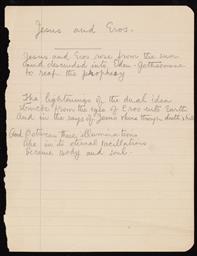 Jesus and Eros.
Jesus and Eros rose from the sun
And descended into Eden-Gethsemane
to reap the prophecy
The lightnings of the dual idea
Struck from the eyes of Eros into Earth
And in the rays of Jesus shone through death's
And Between these illuminations
Ape in its eternal oscillations
Became Body and soul.